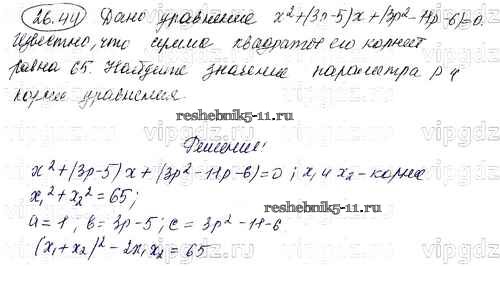 26.44) Дано уравнение x²+(3p-5)x+(3p²-11p-6)=0.
Известно, что сумма квадратов его корней
равна 65. Найдите значение параметра p и
корни уравнения.
reshebnik5-11.ru
Решение:
x²+(3p-5)x+(3p²-11p-6)=0; x₁ и x₂-корни
x₁²+x₂²=65;
a=1; b=3p-5; c=3p²-11-6
reshebnik5-11.ru
(x₁+x₂)²-2x₁x₂=65
vipgdz